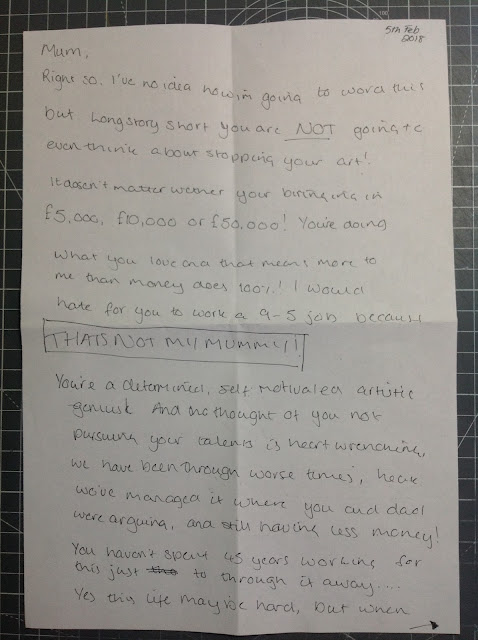 5th Feb
2018
Mum,
Right so. I've no idea how im going to word this
but long story short you are NOT going to
even think about stopping your art!
It doesn't matter wether your bringing in
£5,000, £10,000 or £50,000! You're doing
what you love and that means more to
me than money does 100%! I would
hate for you to work a 9-5 job because
THATS NOT MY MUMMY!!
You're a determined, self motivated artistic
genius. And the thought of you not
pursuing your talents is heart wrenching,
we have been through worse times, heck
we've managed it where you and dad
were arguing, and still having less money!
You haven't spent 45 years working for
this just to through it away....
Yes this life may be hard, but when